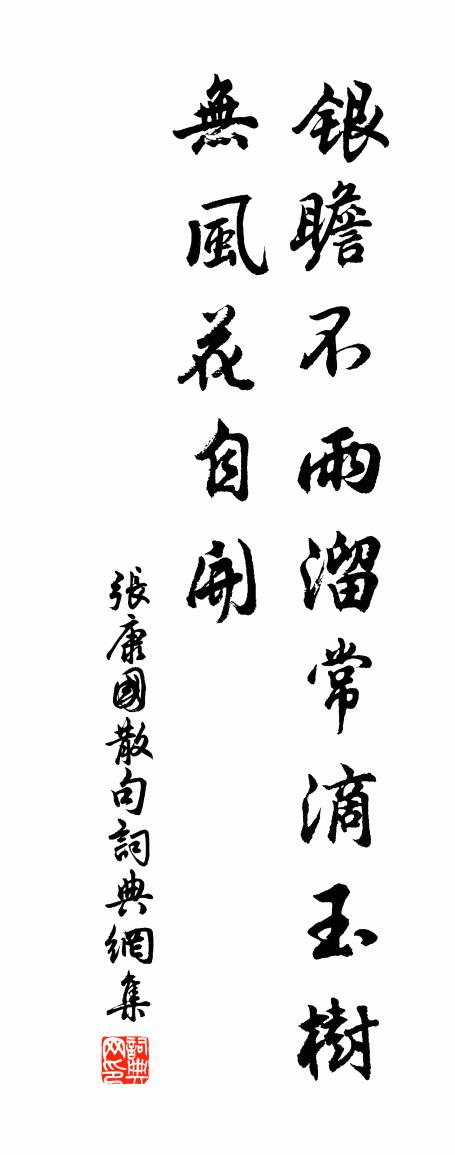 銀瞻不雨溜常滴玉樹
無風花自開
張康國散句詞典網集
詞典
网印